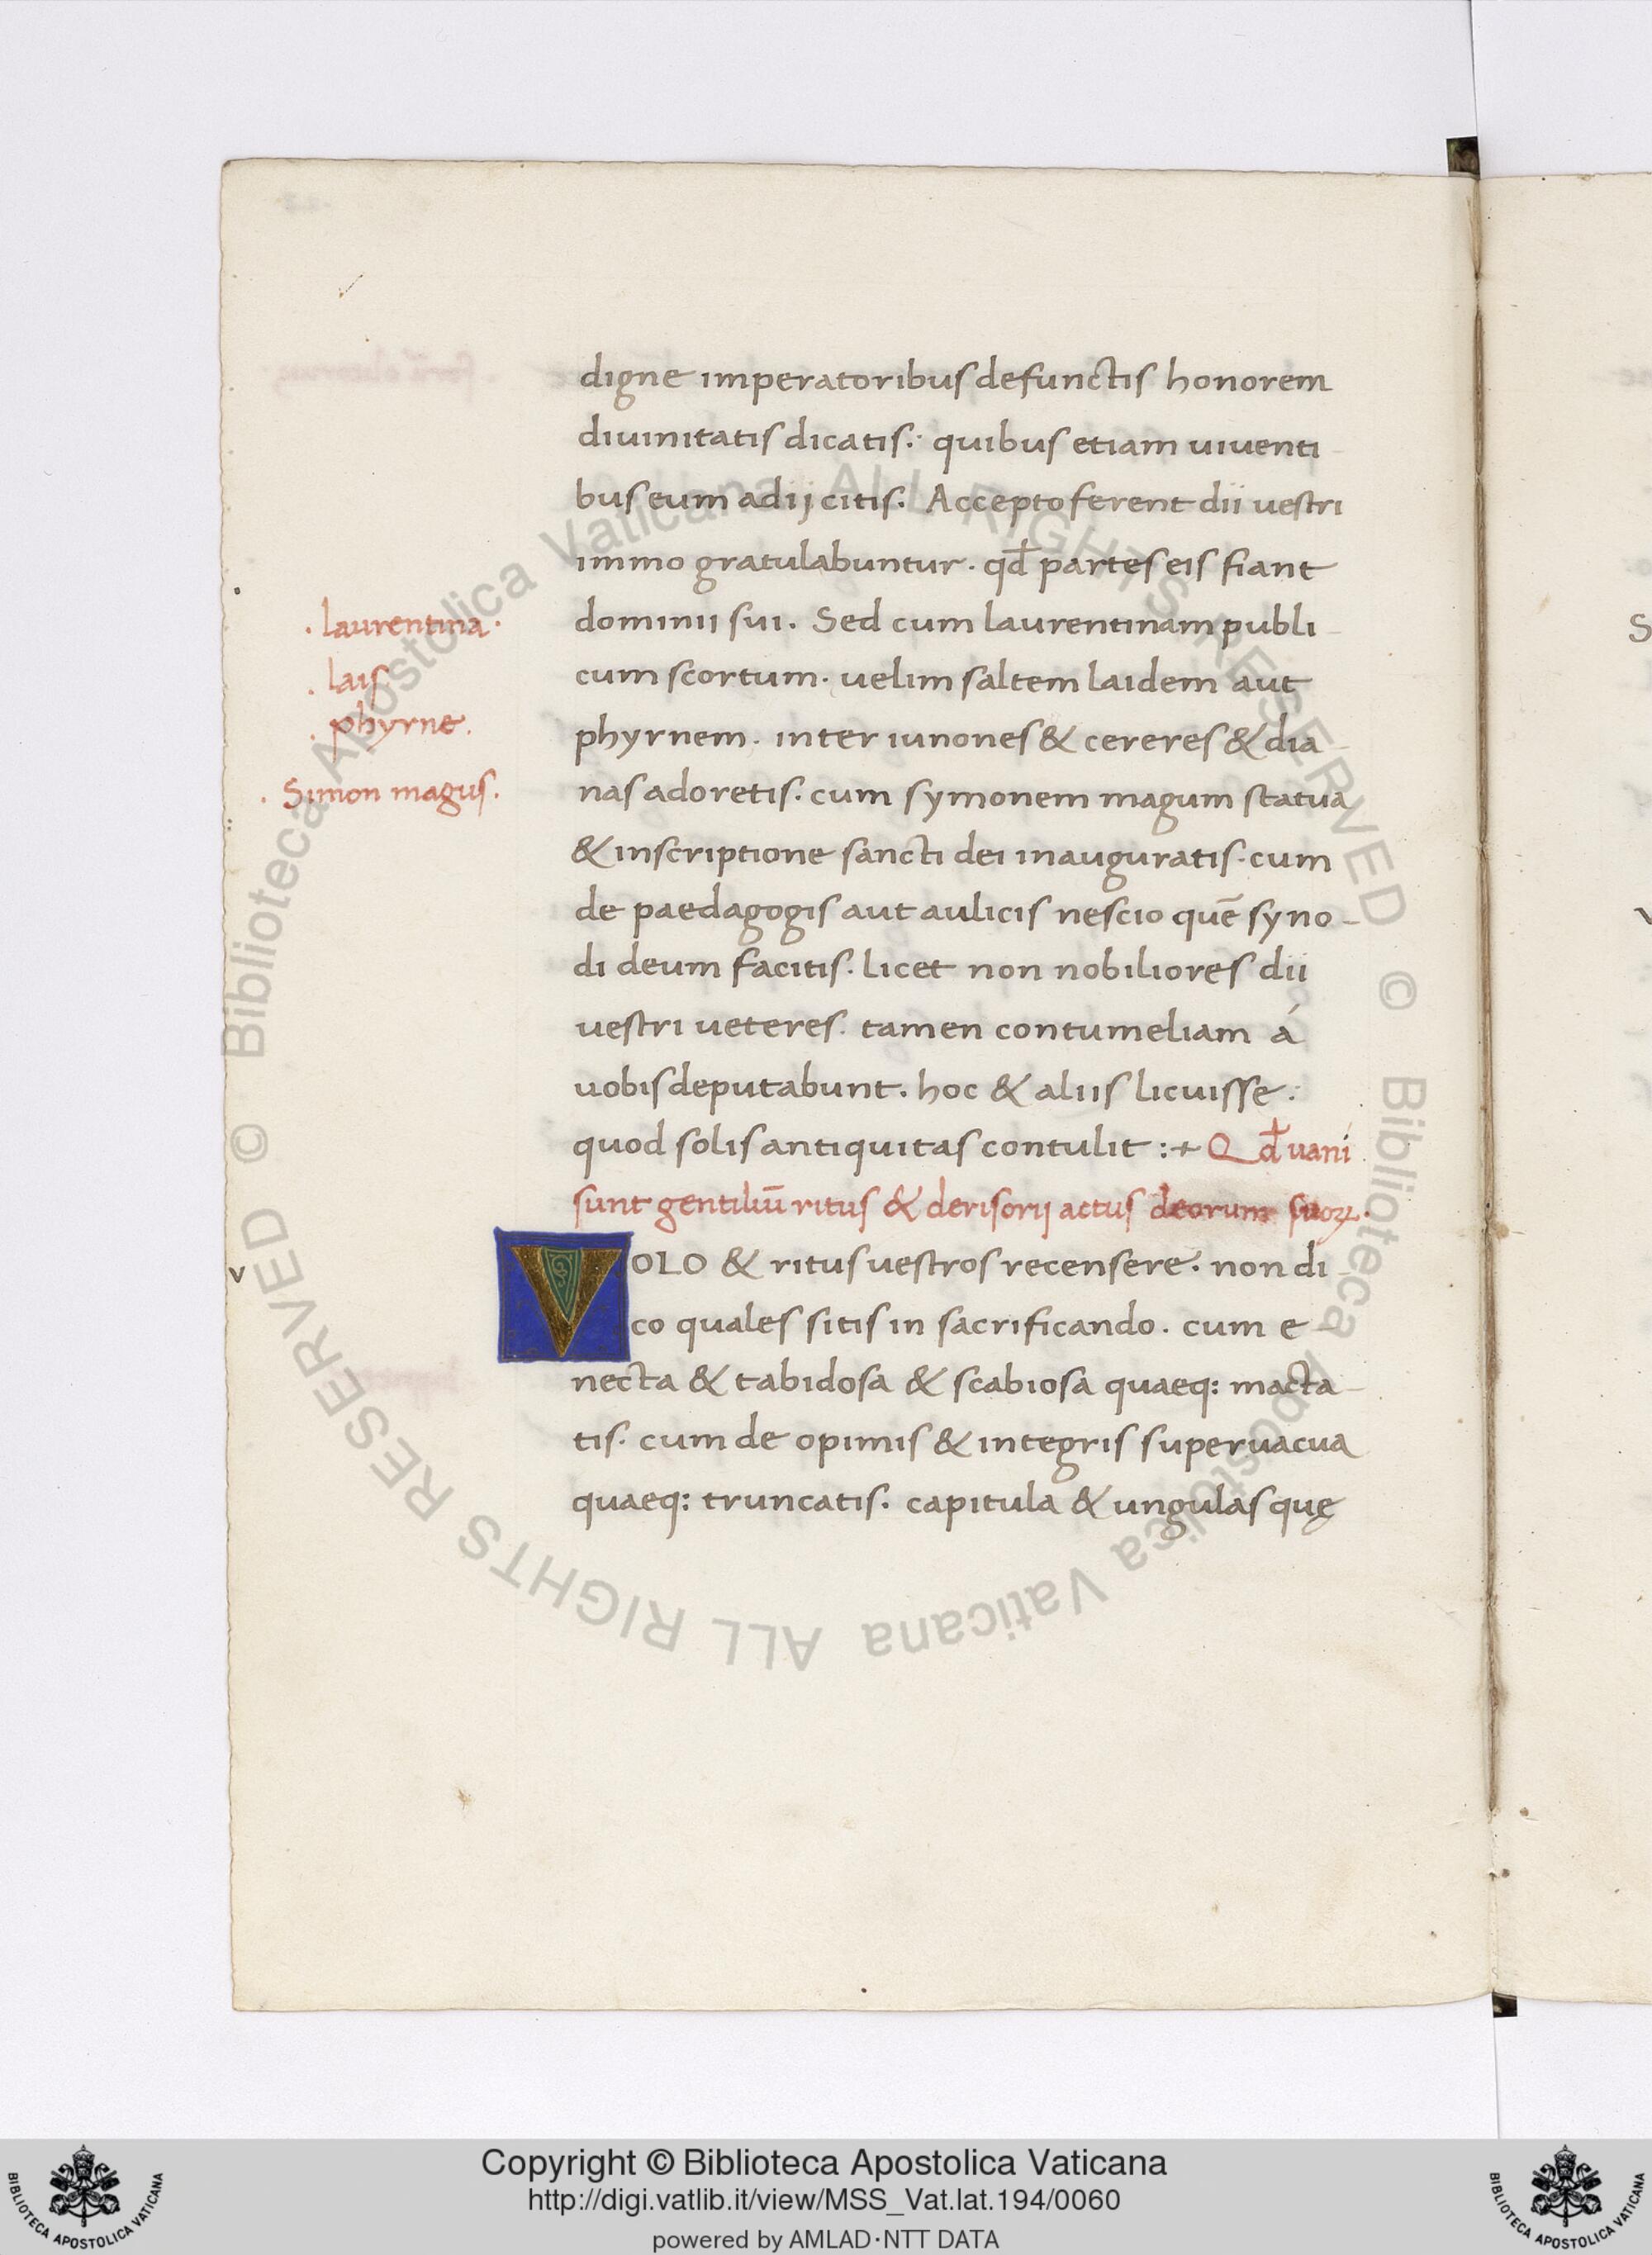 digne imperatoribus defunctis honorem
diuinitatis dicatis: quibus etiam uiuenti
bus eum adijcitis. Accepto ferent dii uestri
immo gratulabuntur. qd̄ partes eis fiant
dominii sui. Sed cum laurentinam publi
cum scortum. uelim saltem laidem aut
phyrnem. inter iunones & cereres & dia
nas adoretis. cum symonem magum statua
& inscriptione sancti dei inauguratis. cum
de paedagogis aut aulicis nescio quē syno-
di deum facitis. licet non nobiliores dii
uestri ueteres. tamen contumeliam á
uobis deputabunt. hoc & aliis licuisse.
quod solis antiquitas contulit :+ Qd̄ uani
sunt gentiliū ritus & derisorij actus deorum suoꝝ.
VOLO & ritus uestros recensere. non di
co quales sitis in sacrificando. cum e
necta & tabidosa & scabiosa quaeq: macta
tis. cum de opimis & integris superuacua
quaeq: truncatis. capitula & ungulas quę
. laurentina.
. lais
. phyrne.
. Simon magus.
v
Biblioteca Apostolica Vaticana ALL RIGHTS RESERVED ©
Biblioteca Apostolica Vaticana ALL RIGHTS RESERVED ©
Copyright © Biblioteca Apostolica Vaticana
http://digi.vatlib.it/view/MSS_Vat.lat.194/0060
powered by AMLAD·NTT DATA
BIBLIOTECA APOSTOLICA VATICANA
BIBLIOTECA APOSTOLICA VATICANA